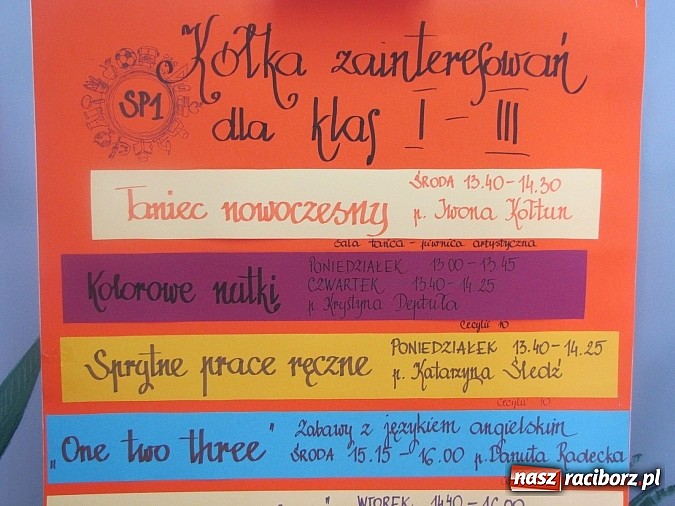 SP1
Kółka zainteresowań
dla klas I - III
Taniec nowoczesny
ŚRODA 13.40-14.30
p. Iwona Kołtun
Sala tańca - piwnica artystyczna
Kolorowe nutki
PONIEDZIAŁEK 13.00-13.45
CZWARTEK 13.40-14.25
p. Krystyna Deptuła
Cecylii 10
Sprytne prace ręczne
PONIEDZIAŁEK 13.40-14.25
p. Katarzyna Śledź
Cecylii 10
„One two three"
Zabawy z językiem angielskim
ŚRODA 15.15 - 16.00 p. Danuta Radecka
WTOREK 14.40-16.00
nasz raciborz.pl